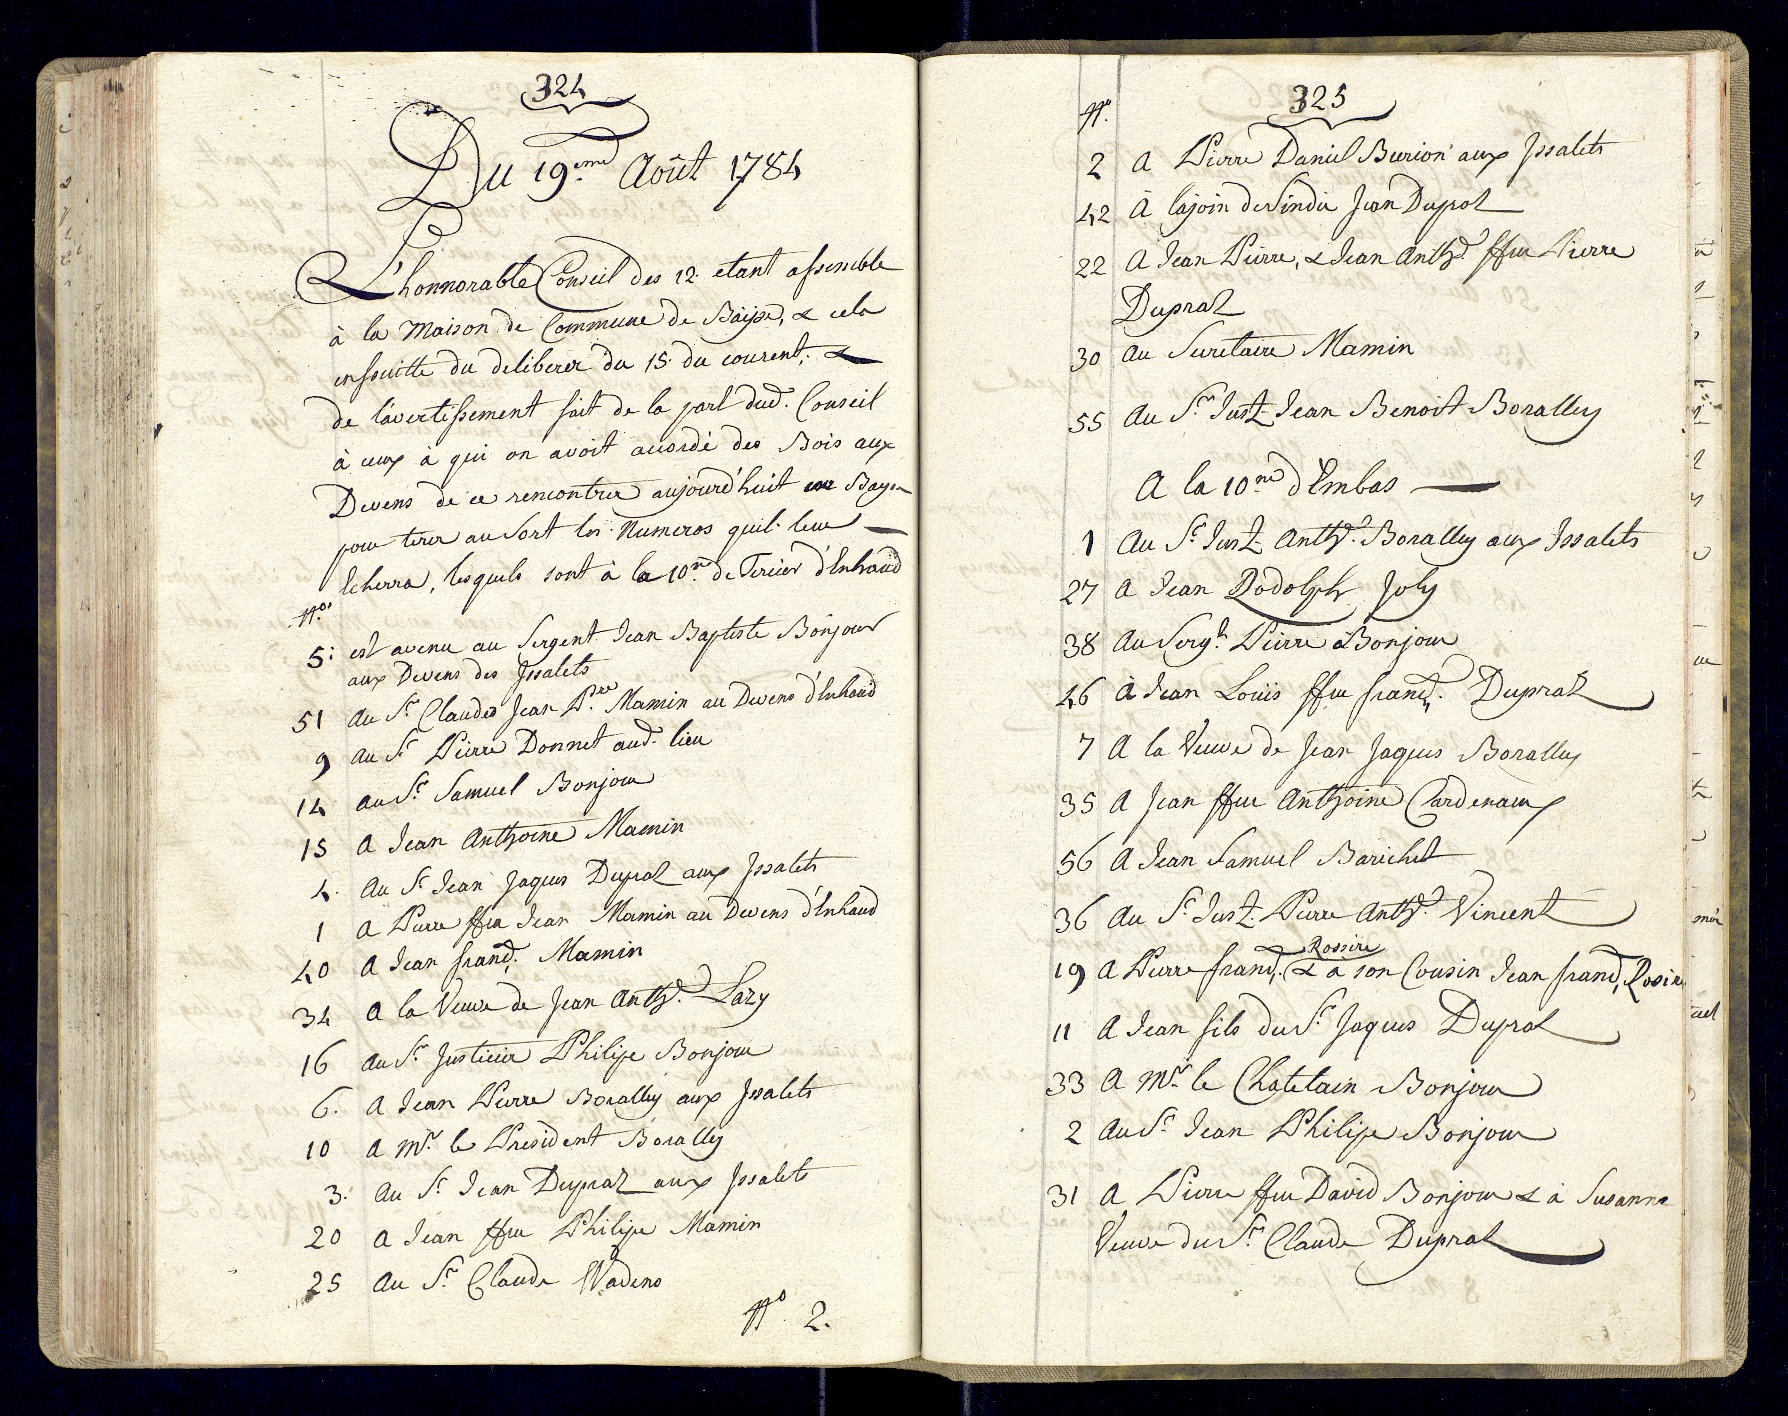 324
Du 19.eme Août 1784
L'honnorable Conseil des 12. etant assemble
à la Maison de Commune de Baÿse, & cela
ensuitte du deliberer du 15. du courent, &
de l'avertissement fait de la part dud. Conseil
à ceux à qui on avoit accordé des Bois aux
Devens de ce rencontrer aujourd'huit
pour tirer au sort les Numeros quil leur
Echerra, lesquels sont à la 10.ne de Tercier d'Enhaud
No.
5: est avenu au Sergent Jean Baptiste Bonjour
aux Devens des Jssalets
51 au Sr. Claude Jean P.re Mamin au Devens d'Enhaud
9 au Sr. Pierre Donnet aud. lieu
14 au Sr. Samuel Bonjour
15 a Jean Anthoine Mamin
4. au Sr. Jean Jaques Dupraz aux Jssalets
1 a Pierre ffeu Jean Mamin au Devens d'Enhaud
40 a Jean frand. Mamin
34 a la Veuve de Jean Anthe. Lazy
16 au Sr. Justicier Philipe Bonjour
6. a Jean Pierre Boralley aux Jssalets
10 a Mr. le President Boralley
3. au Sr. Jean Dupraz aux Jssalets
20 a Jean ffeu Philipe Mamin
25 au Sr. Claude Wadens
No. 2.
325
No.
2 a Pierre Daniel Burion aux Jssalets
42 à lajoin du Sindic Jean Dupraz
22 a Jean Pierre, & Jean Anthe. ffeu Pierre
Dupraz
30 au Secretaire Mamin
55 au Sr. Just. Jean Benoit Boralley
a la 10.ne d'Embas
1 au Sr. Just. Anthe. Boralley aux Jssalets
27 a Jean Rodolph Joly
38 au Sergt. Pierre Bonjour
46 à Jean Loüis ffeu frand. Dupraz
7 a la Veuve de Jean Jaques Boralley
35 a Jean ffeu Anthoine Cardenaux
56 a Jean Samuel Barichet
36 au Sr. Just. Pierre Anthe. Vincent
19 a Pierre frand. Rossire & a son Cousin Jean frand. Rosire
11 a Jean fils du Sr. Jaques Dupraz
33 a Mr. le Chatelain Bonjour
2 au Sr. Jean Philipe Bonjour
31 a Pierre ffeu David Bonjour & à Susanne
Veuve du Sr. Claude Dupraz